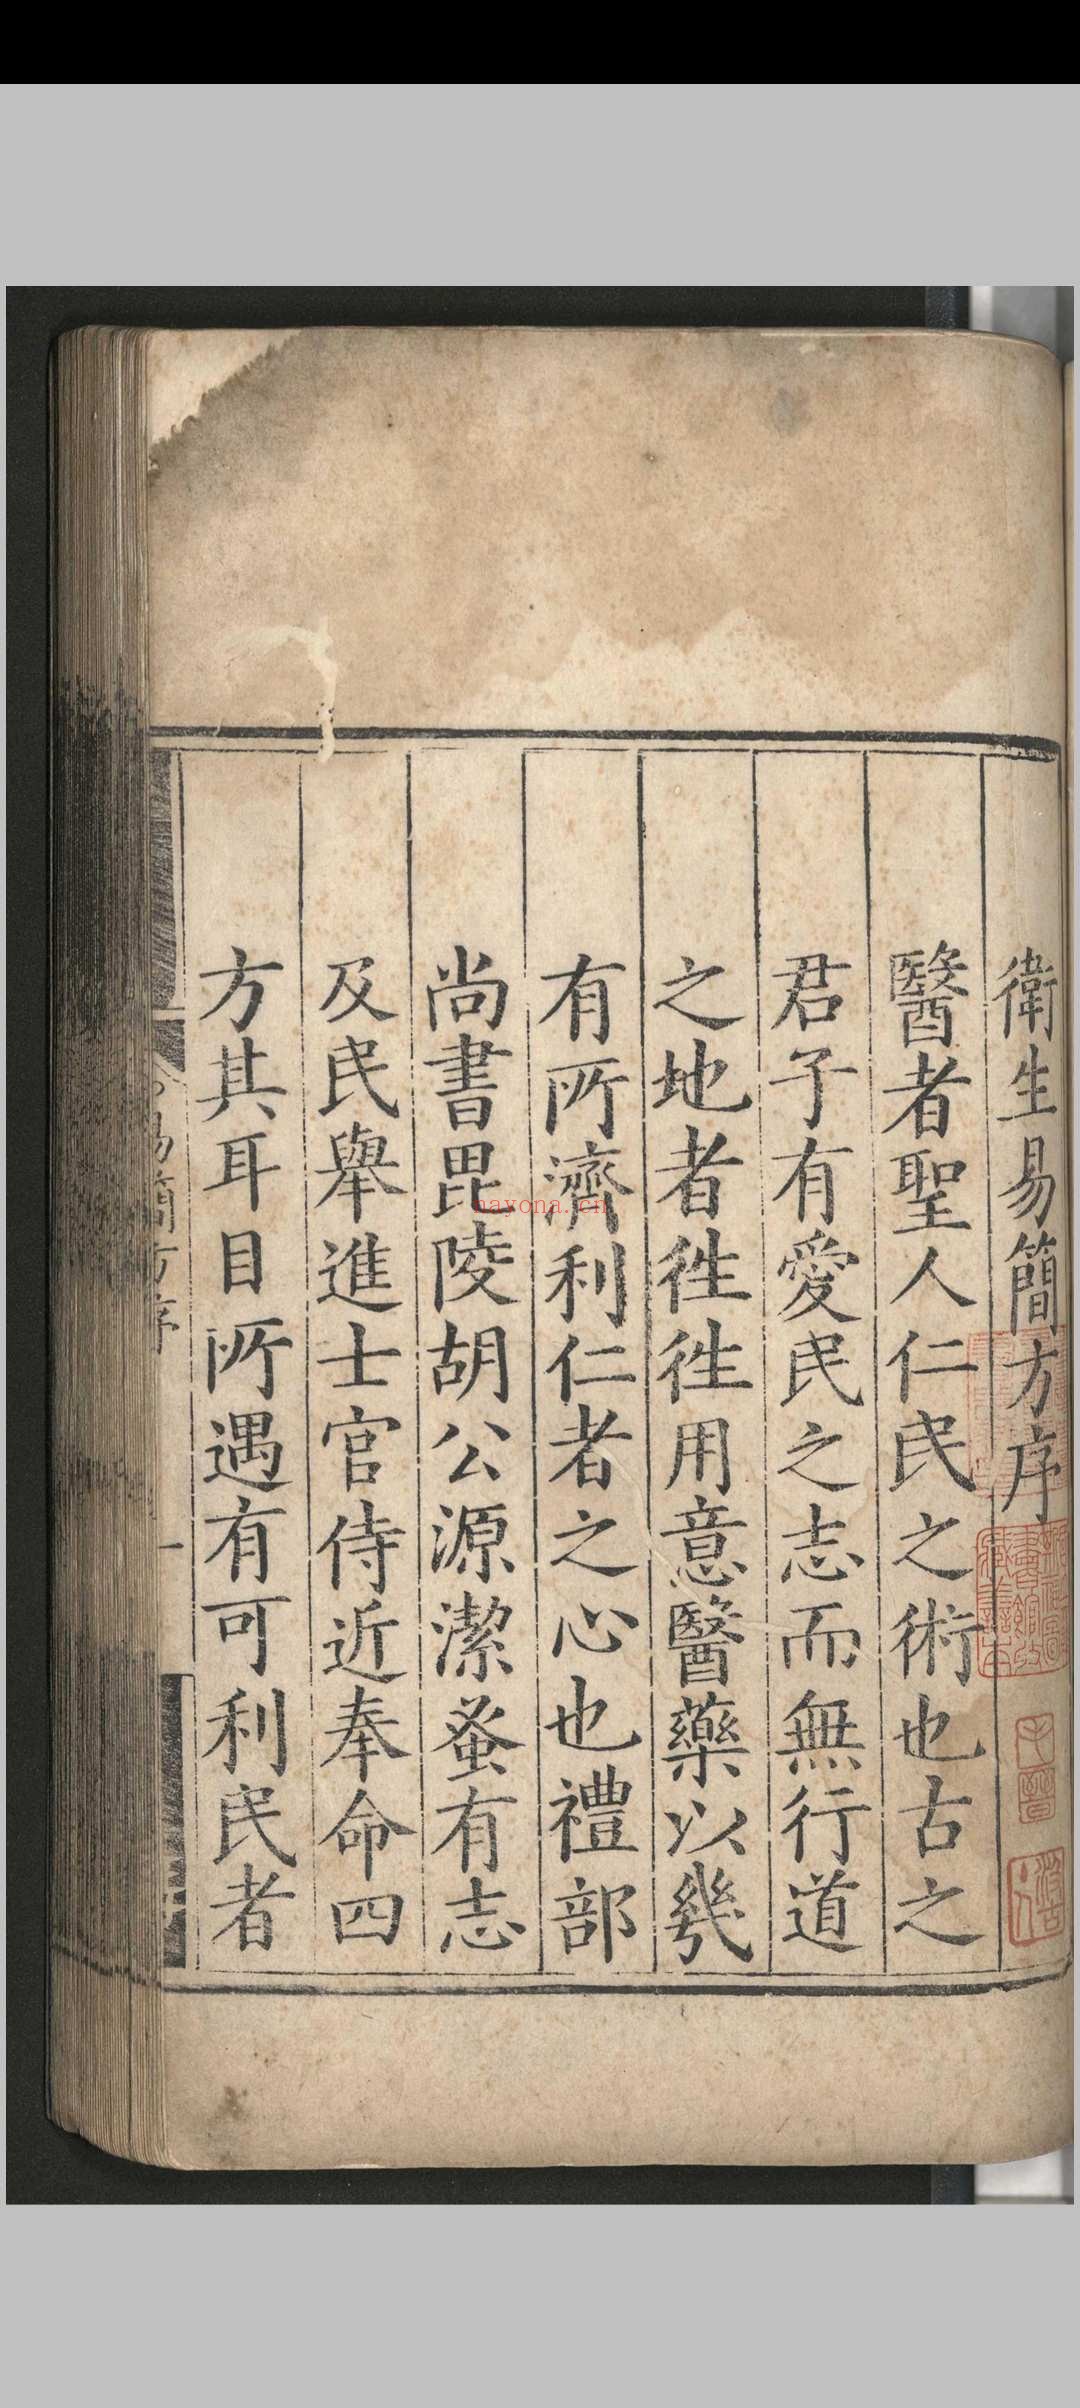 衛生易簡方序
醫者聖人仁民之術也古之
君子有愛民之志而無行道
之地者徃徃用意醫藥以兾
有所濟利仁者之心也禮部
尚書毘陵胡公源潔蚤有志
及民舉進士官侍近奉命四
方其耳目所遇有可利民者
易簡方序
一
nayona.cn